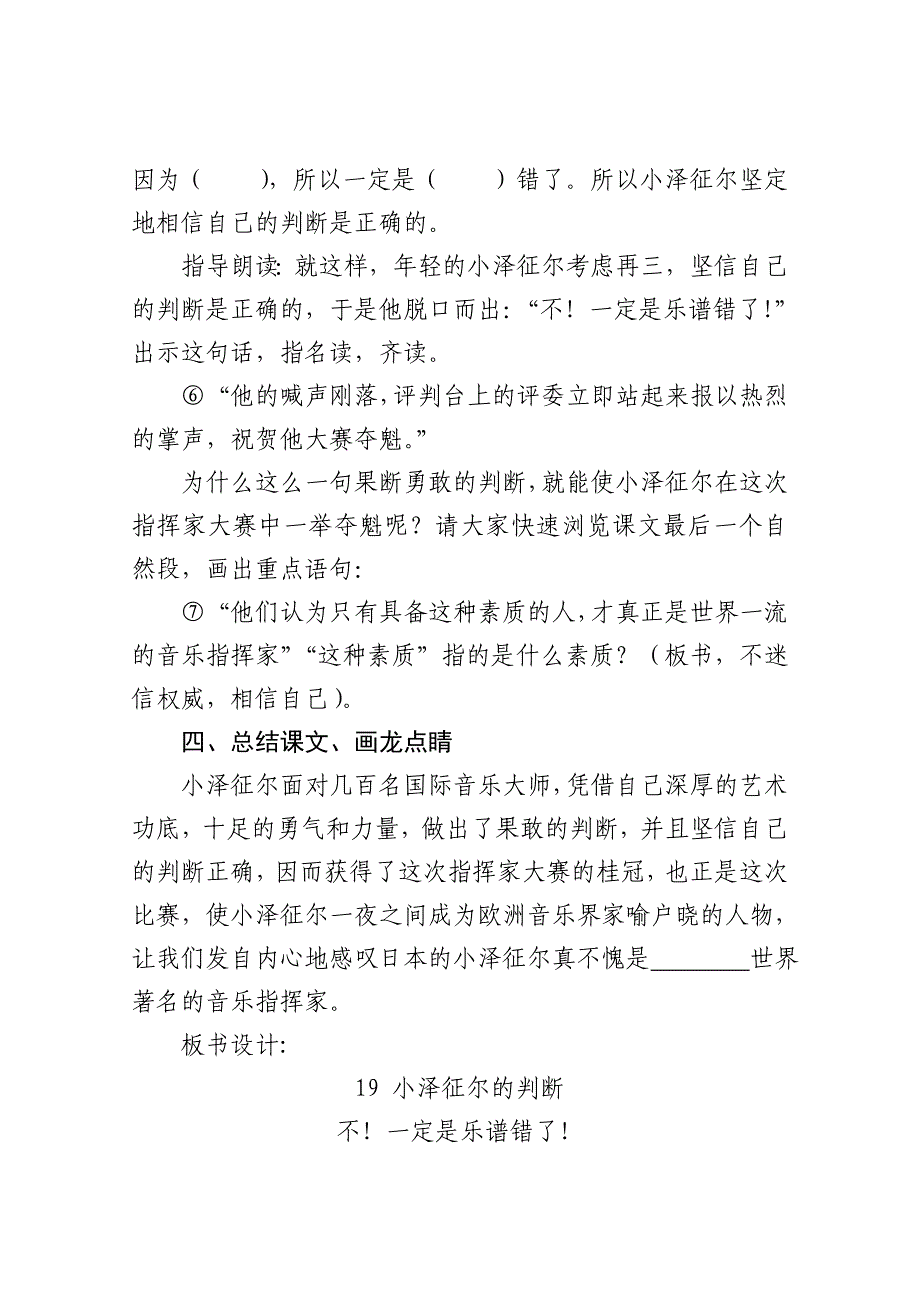 因为（　　），所以一定是（　　）错了。所以小泽征尔坚定
地相信自己的判断是正确的。
指导朗读：就这样，年轻的小泽征尔考虑再三，坚信自己
的判断是正确的，于是他脱口而出：“不！一定是乐谱错了！”
出示这句话，指名读，齐读。
⑥“他的喊声刚落，评判台上的评委立即站起来报以热烈
的掌声，祝贺他大赛夺魁。”
为什么这么一句果断勇敢的判断，就能使小泽征尔在这次
指挥家大赛中一举夺魁呢？请大家快速浏览课文最后一个自
然段，画出重点语句：
⑦“他们认为只有具备这种素质的人，才真正是世界一流
的音乐指挥家”“这种素质”指的是什么素质？（板书，不迷
信权威，相信自己）。
四、总结课文、画龙点睛
小泽征尔面对几百名国际音乐大师，凭借自己深厚的艺术
功底，十足的勇气和力量，做出了果敢的判断，并且坚信自己
的判断正确，因而获得了这次指挥家大赛的桂冠，也正是这次
比赛，使小泽征尔一夜之间成为欧洲音乐界家喻户晓的人物，
让我们发自内心地感叹日本的小泽征尔真不愧是________世界
著名的音乐指挥家。
板书设计：
19 小泽征尔的判断
不！一定是乐谱错了！